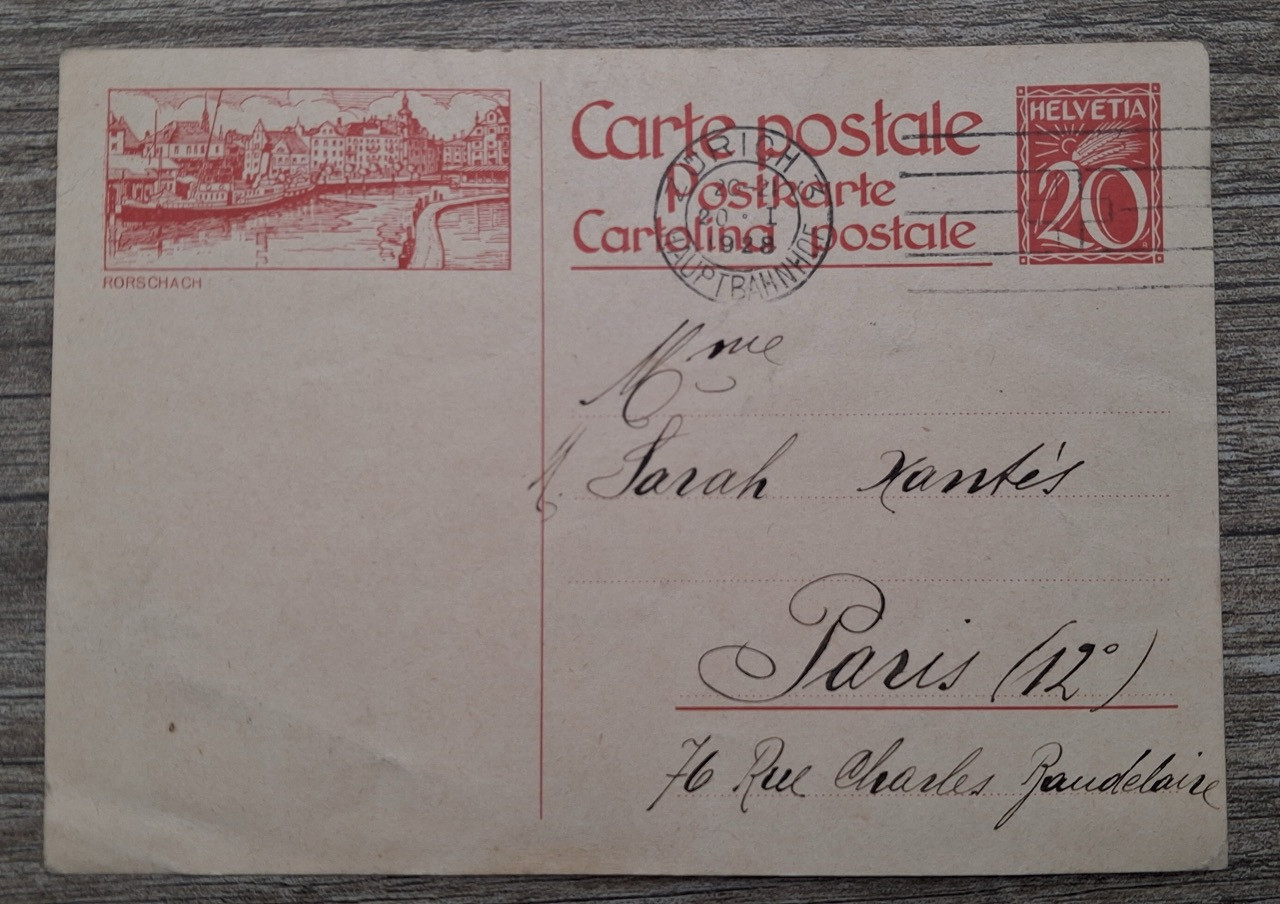 RORSCHACH
Carte postale
Postkarte
Cartolina postale
HELVETIA
20
ZÜRICH
20-21
20 · I
1928
HAUPTBAHNHOF
Mme
Sarah Xantès
Paris (12°)
76 Rue Charles Baudelaire